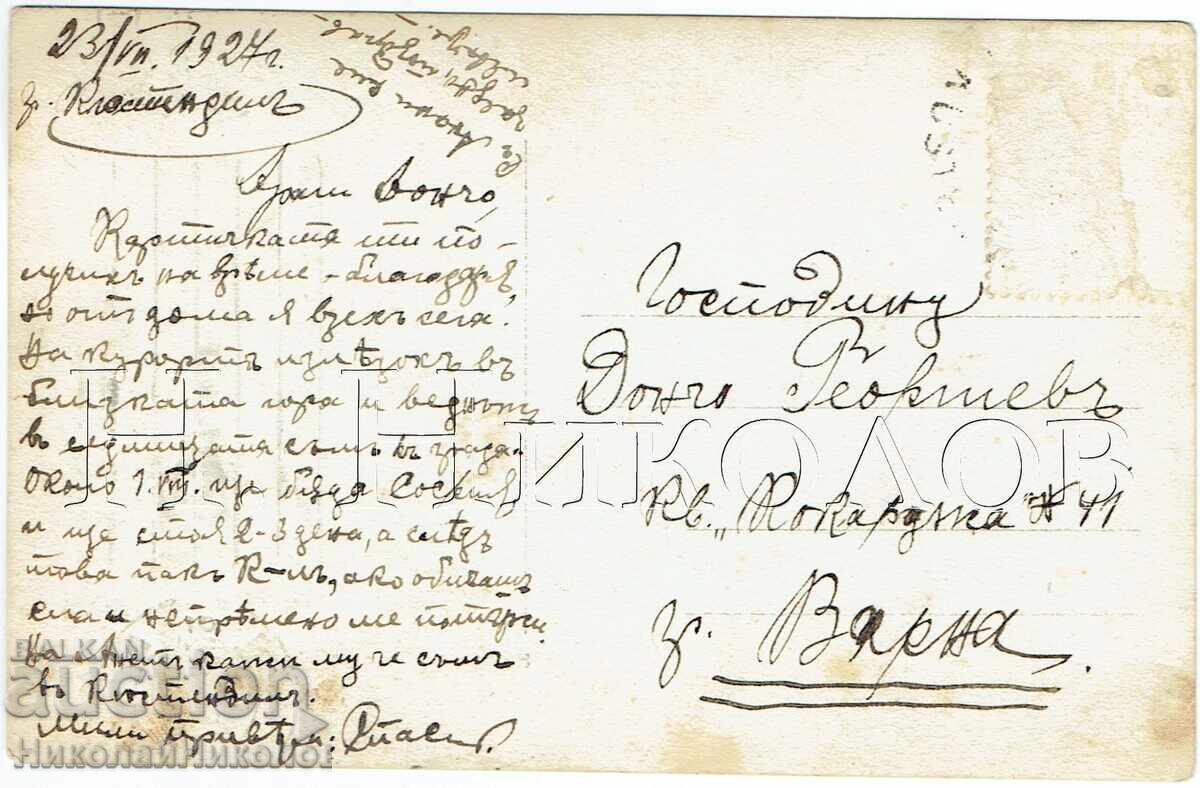 23/VII. 1927 г.
гр. Кюстендилъ
Драги Дончо,
Картичката ти по-
лучихъ на врѣме - благодаря,
но отъ дома я взехъ сега.
На курортъ излѣзохъ въ
близката гора и веднъжъ
въ седмицата съмъ въ града.
Около 1.VIII. ще бѫда София
и ще стоя 2-3 дена, а слѣдъ
това пакъ К-лъ, ако обичашъ
ела и непрѣмено ме потърси.
На кажи му че съмъ
въ Кюстендилъ.
Мили привѣти: Спас
Господину
Дончо Георгиевъ
Кв. „Кокарджа" № 41
гр. Варна.
Н Николов
BALKAN
auction
НиколайНиколов